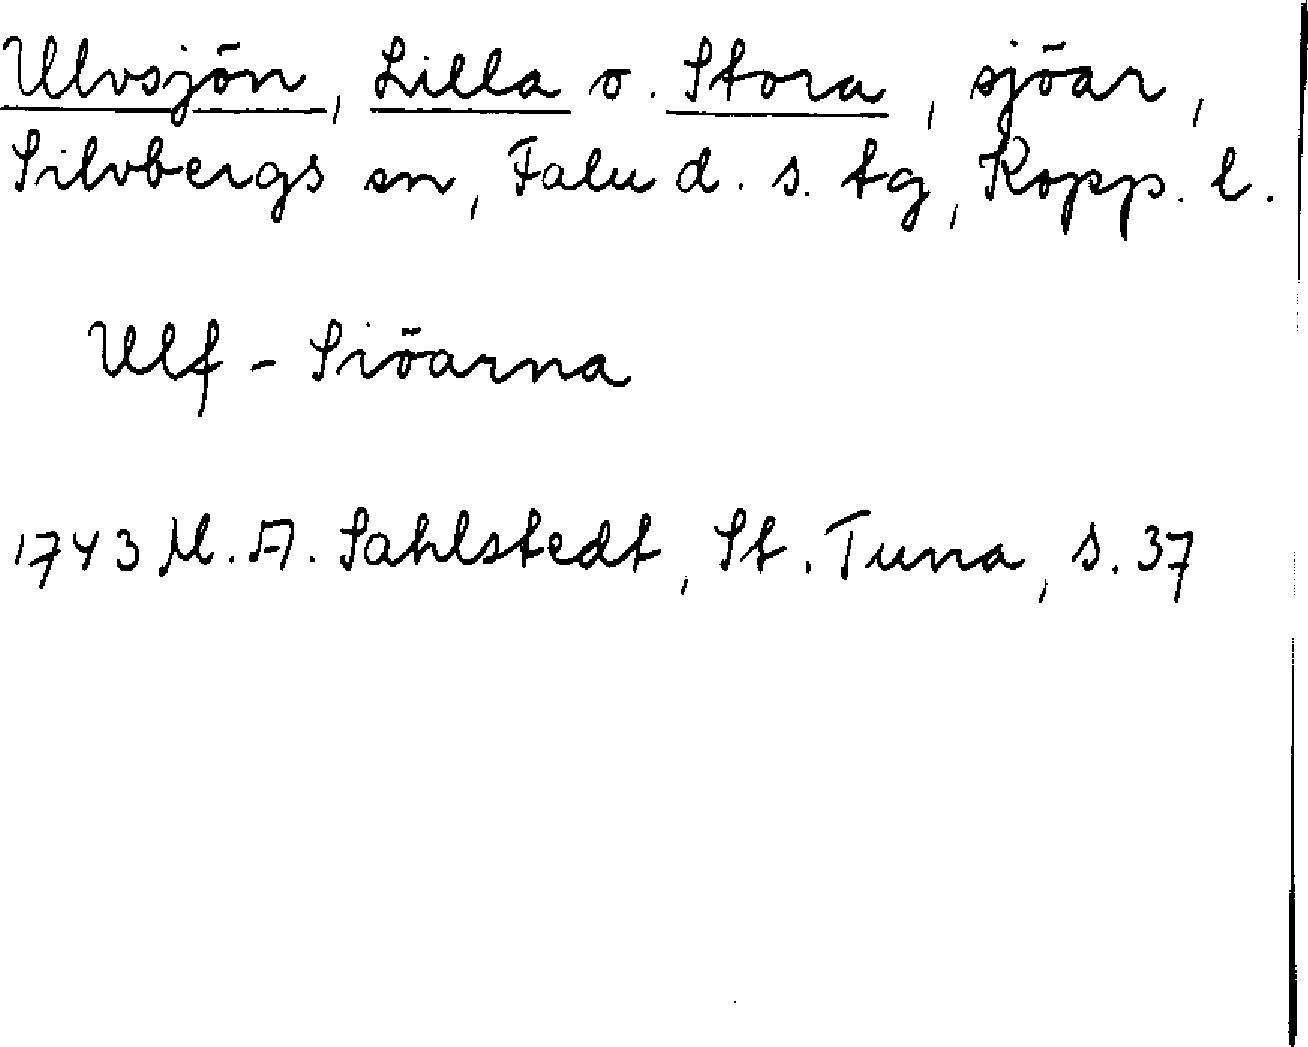 Ulvsjön, Lilla o. Stora, sjöar,
Silvbergs sn, Falu d. s. tg, Kopp. l.
Ulf - Siöarna
1743 M. A. Sahlstedt, St. Tuna, s. 37